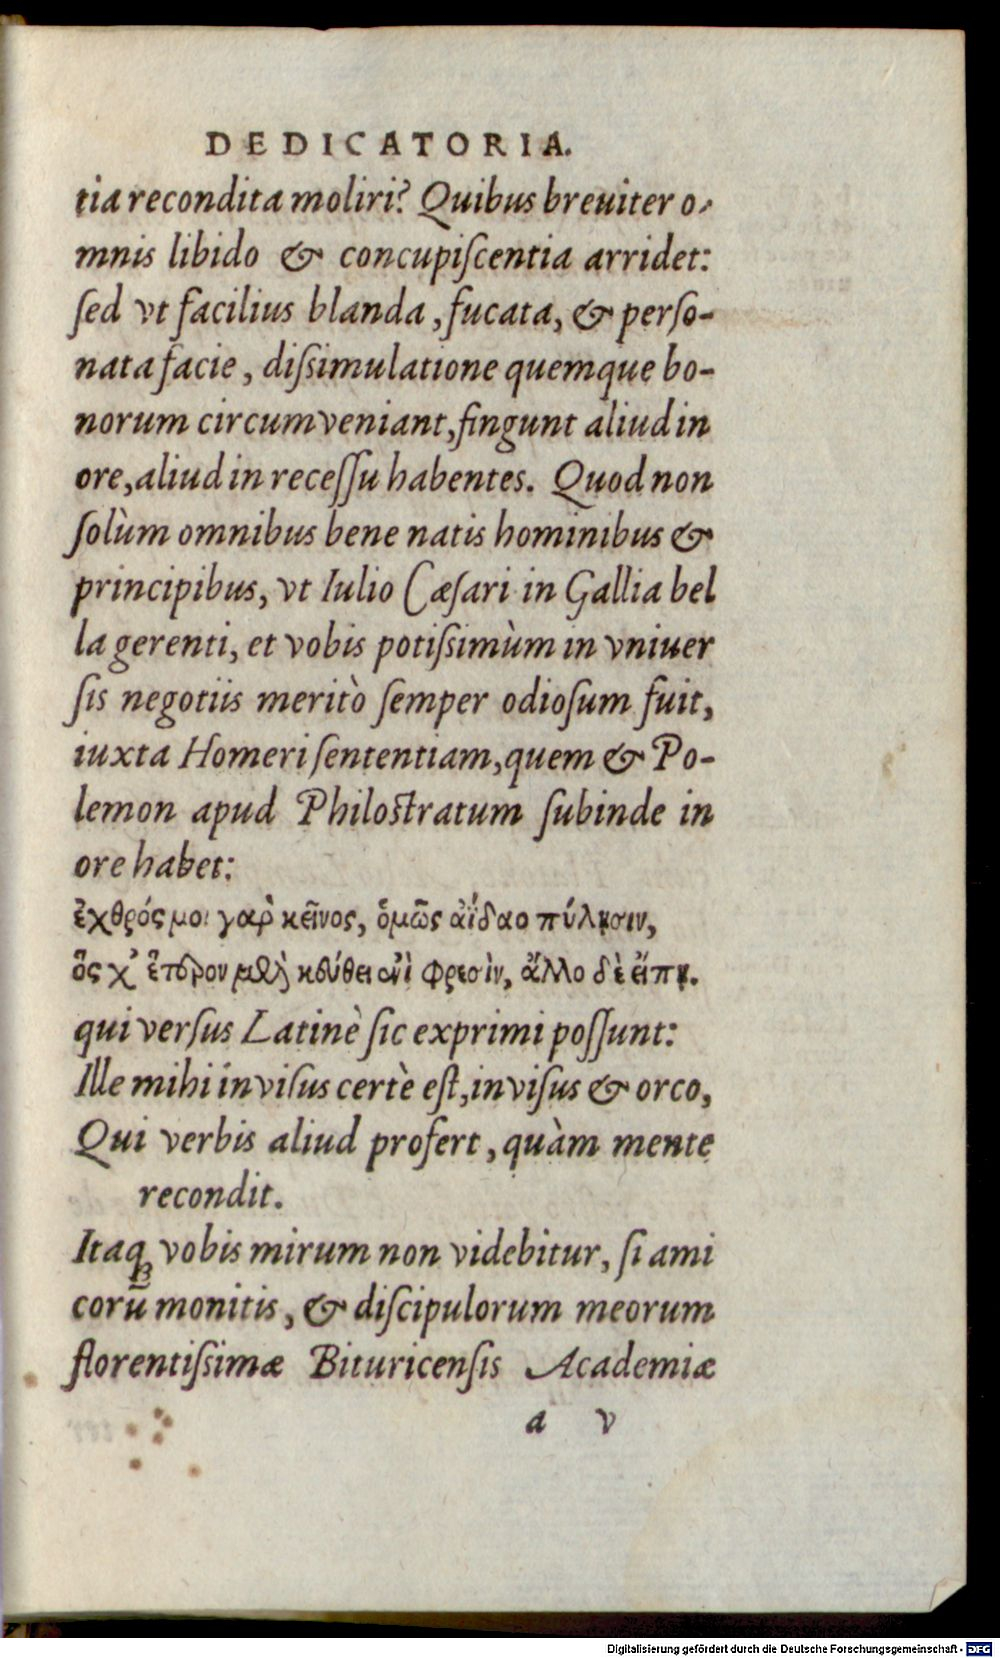 DEDICATORIA.
tia recondita moliri? Quibus breuiter o-
mnis libido & concupiſcentia arridet:
ſed vt facilius blanda, fucata, & perſo-
nata facie, diſſimulatione quemque bo-
norum circumveniant, fingunt aliud in
ore, aliud in receſſu habentes. Quod non
ſolùm omnibus bene natis hominibus &
principibus, vt Iulio Cæſari in Gallia bel
la gerenti, et vobis potiſſimùm in vniuer
ſis negotiis meritò ſemper odioſum fuit,
iuxta Homeri ſententiam, quem & Po-
lemon apud Philoſtratum ſubinde in
ore habet:
ἐχθρός μοι γαρ̀ κεῖνος, ὁμῶς ἀΐδαο πύλῃσιν,
ὅς χ' ἕτερον μὲν κεύθει ἐνὶ φρεσὶν, ἄλλο δὲ εἴπῃ.
qui verſus Latinè ſic exprimi poſſunt:
Ille mihi inviſus certè eſt, inviſus & orco,
Qui verbis aliud profert, quàm mente
recondit.
Itaq; vobis mirum non videbitur, ſi ami
corū monitis, & diſcipulorum meorum
florentiſſimæ Bituricenſis Academiæ
a v
Digitalisierung gefördert durch die Deutsche Forschungsgemeinschaft - DFG